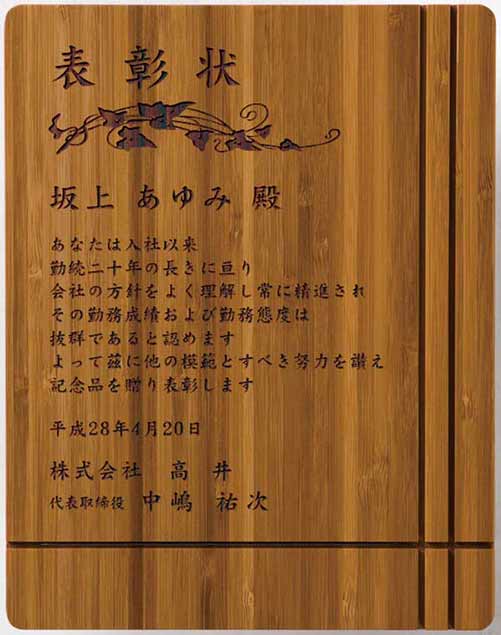 表彰状
坂上 あゆみ 殿
あなたは入社以来
勤続二十年の長きに亘り
会社の方針をよく理解し常に精進され
その勤務成績および勤務態度は
抜群であると認めます
よって茲に他の模範とすべき努力を讃え
記念品を贈り表彰します
平成28年4月20日
株式会社 高井
代表取締役 中嶋 祐次